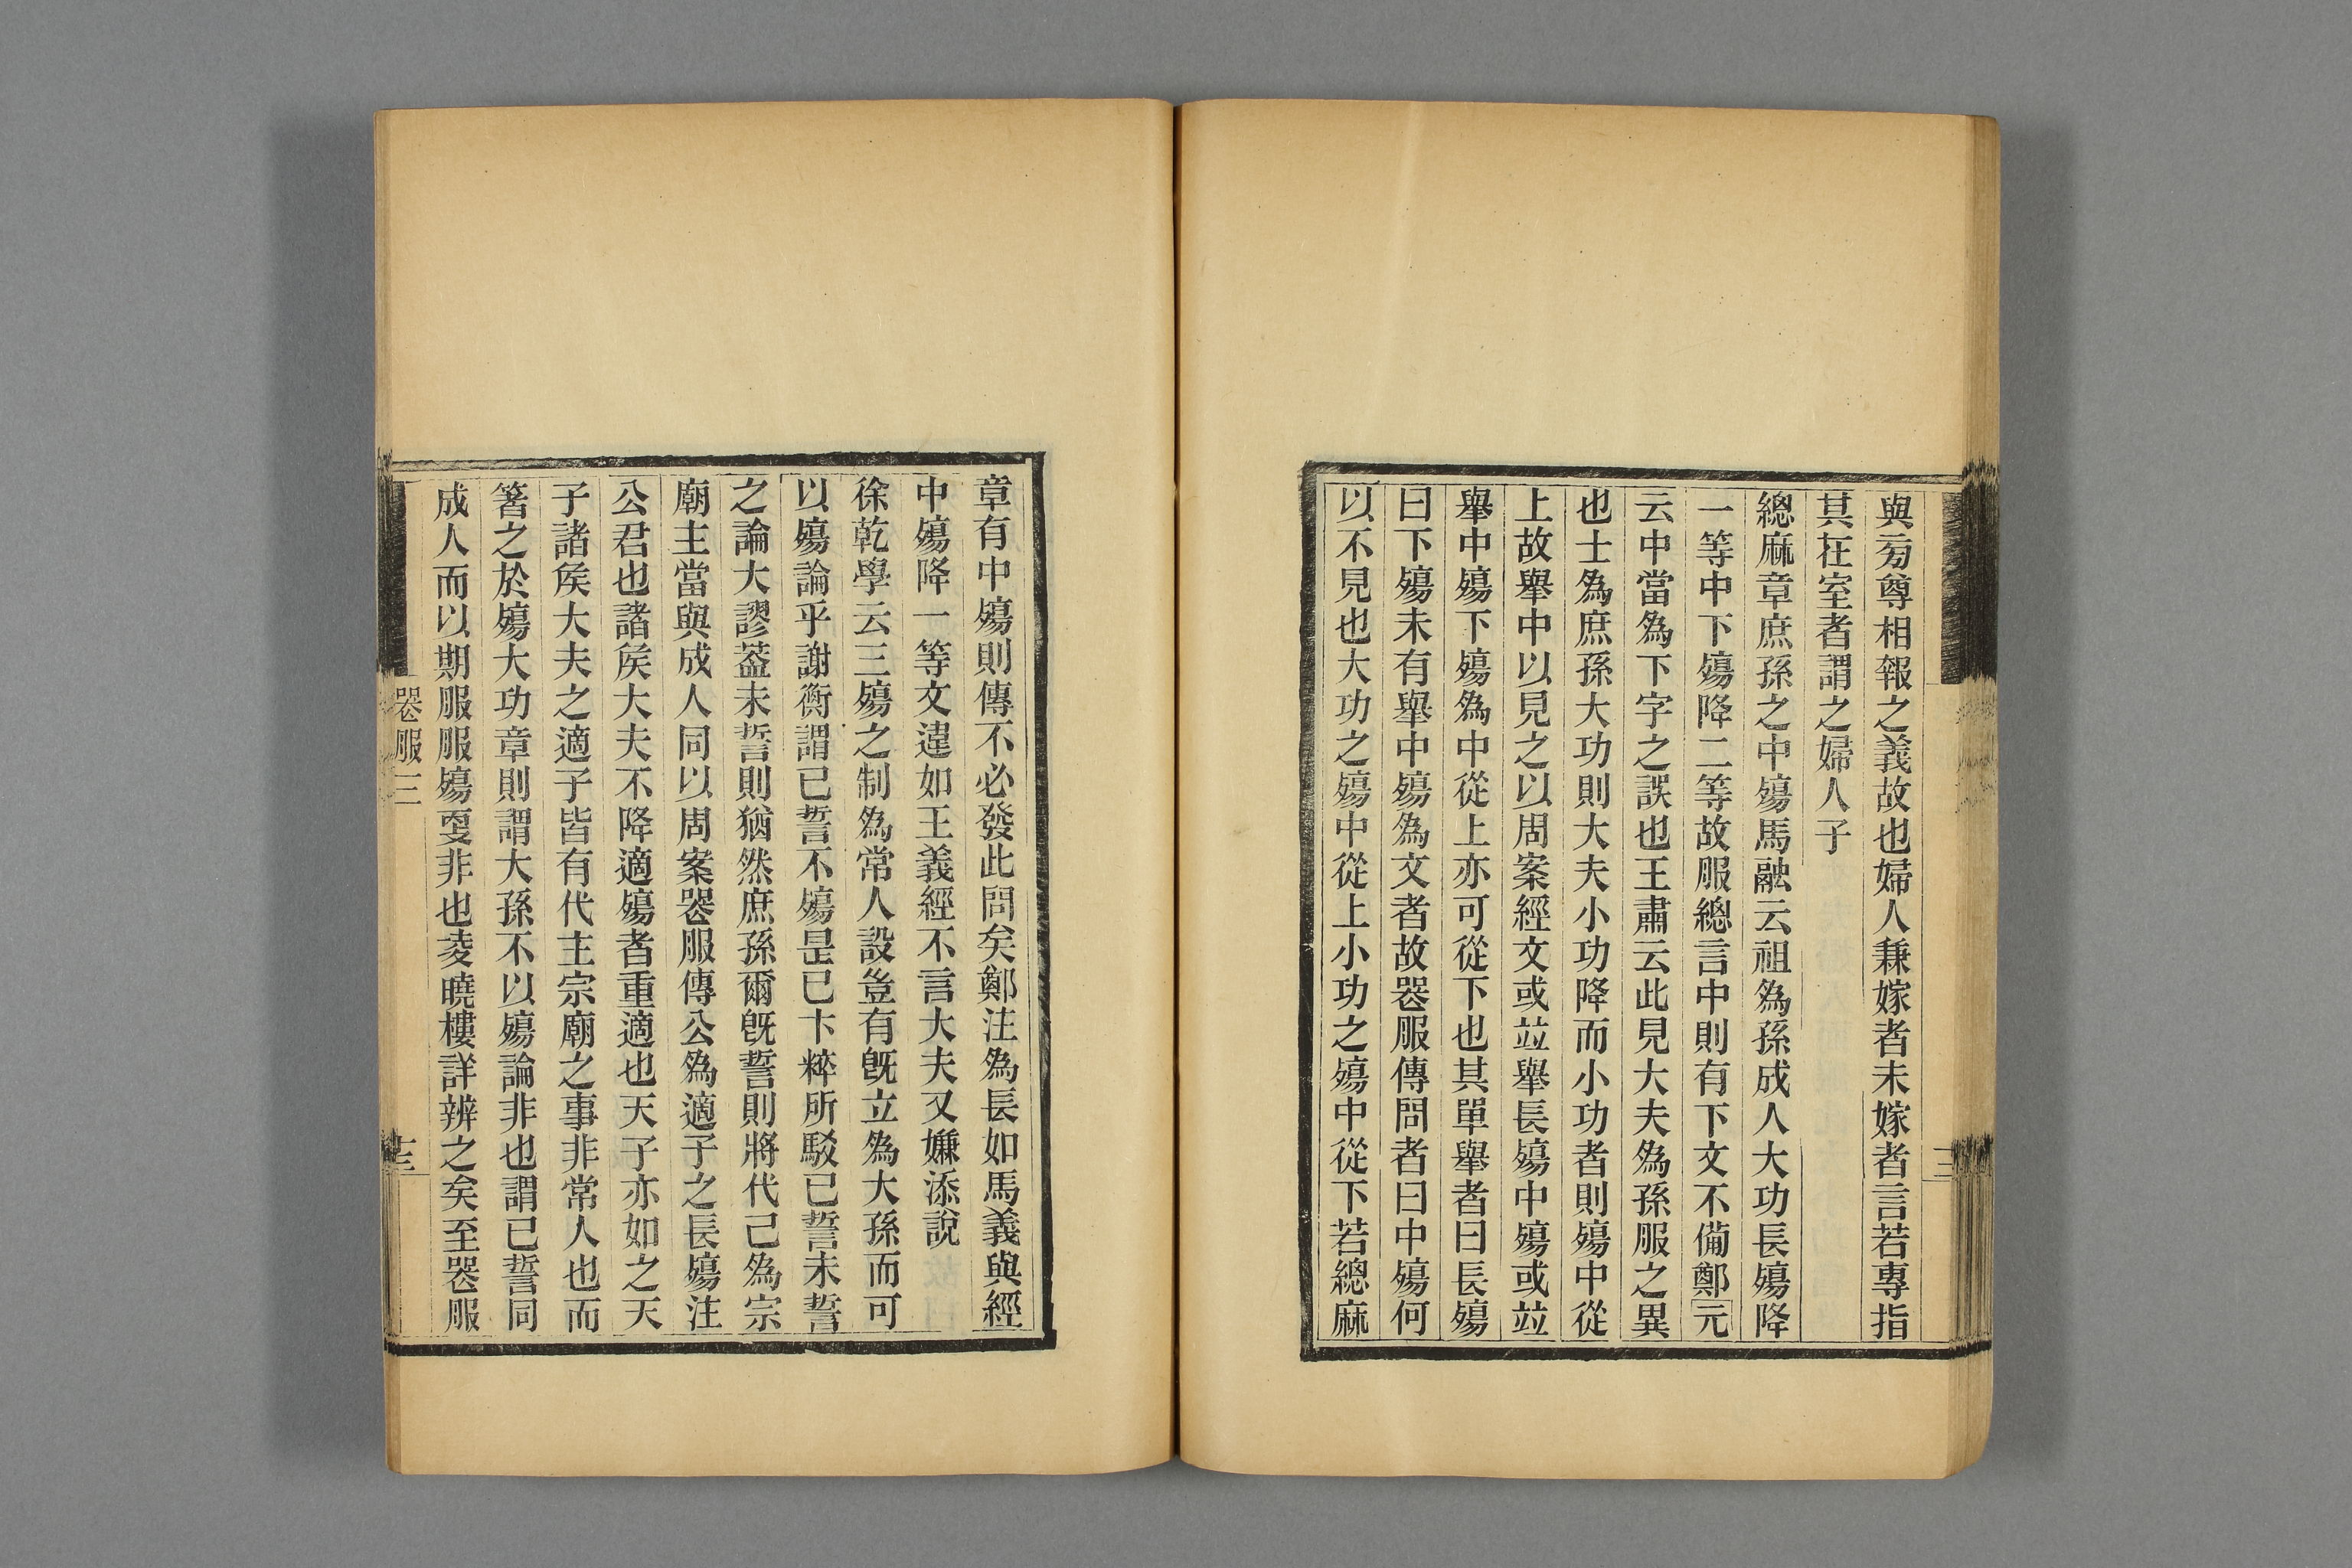 與㫄尊相報之義故也婦人兼嫁者未嫁者言若專指
其在室者謂之婦人子
總麻章庶孫之中殤馬融云祖爲孫成人大功長殤降
一等中下殤降二等故服總言中則有下文不備鄭元
云中當爲下字之誤也王肅云此見大夫爲孫服之異
也士爲庶孫大功則大夫小功降而小功者則殤中從
上故舉中以見之以周案經文或竝舉長殤中殤或竝
舉中殤下殤爲中從上亦可從下也其單舉者曰長殤
曰下殤未有舉中殤爲文者故喪服傳問者曰中殤何
以不見也大功之殤中從上小功之殤中從下若總麻
章有中殤則傳不必發此問矣鄭注爲長如馬義與經
中殤降一等文違如王義經不言大夫又嫌添說
徐乾學云三殤之制爲常人設豈有旣立爲大孫而可
以殤論乎謝衡謂已誓不殤是已卞粹所駁已誓未誓
之論大謬葢未誓則猶然庶孫爾旣誓則將代己爲宗
廟主當與成人同以周案喪服傳公爲適子之長殤注
公君也諸矦大夫不降適殤者重適也天子亦如之天
子諸矦大夫之適子皆有代主宗廟之事非常人也而
箸之於殤大功章則謂大孫不以殤論非也謂已誓同
成人而以期服服殤㪅非也凌曉樓詳辨之矣至喪服
喪服三
十三